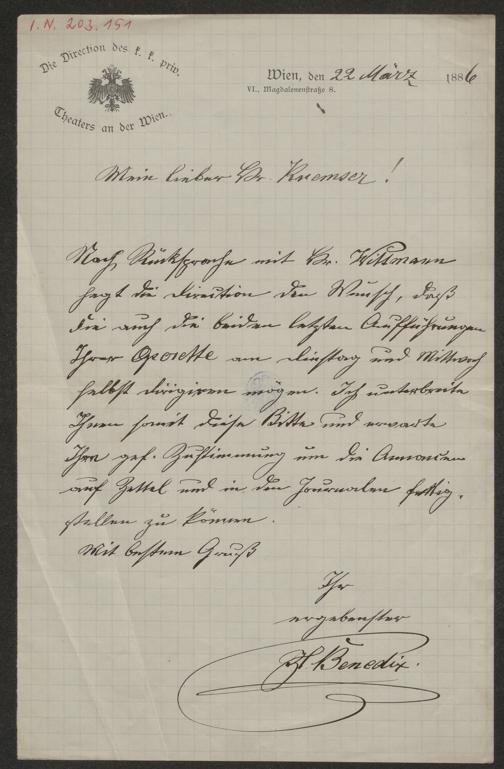 I. N. 203.151
Die Direction des k. k. priv.
Theaters an der Wien.
Wien, den 22 März 1886
VI., Magdalenenstraße 8.
Mein lieber Hr. Kremser!
Nach Rücksprache mit Hr. Wittmann
hegt die Direction den Wunsch, daß
Sie auch die beiden letzten Aufführungen
Ihrer Operette am Dinstag und Mittwoch
selbst dirigiren mögen. Ich unterbreite
Ihnen somit diese Bitte und erwarte
Ihre gef. Zustimmung um die Annoncen
auf Zettel und in den Journalen fertig-
stellen zu können.
Mit bestem Gruß
Ihr
ergebenster
Benedix.